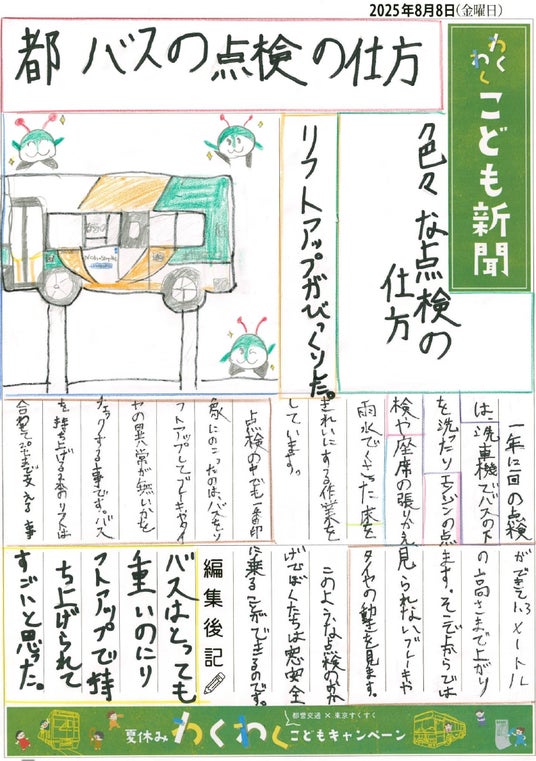 2025年8月8日(金曜日)
わくわく
こども新聞
都バスの点検の仕方
色々な点検の
仕方
リフトアップがびっくりした。
一年に一回の点検
は、洗車機でバスの下
を洗ったりエンジンの点
検や座席の張りかえ
雨水でくさった床を
きれいにする作業を
しています。
点検の中でも一番印
象にのこったのはバスをリ
フトアップしてブレーキやタイ
ヤの異常が無いかを
チェックする事です。バス
を持ち上げる
合わせて
変える事
ができ1.3メートル
の高さまで上がり
ます。そこで上からでは
見られないブレーキや
タイヤの動きを見ます。
このような点検のおか
げでぼくたちは安心安全
に乗ることができるのです。
編集後記
バスはとっても
重いのにリ
フトアップで持
ち上げられて
すごいと思った。
都営交通×東京すくすく
夏休みわくわくこどもキャンペーン